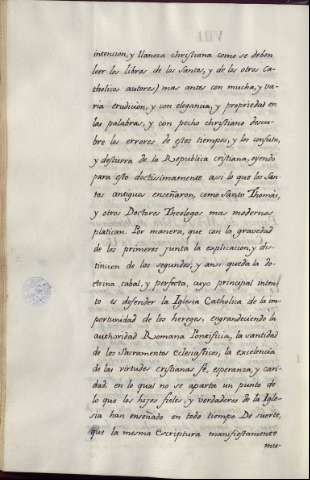 intension, y llaneza christiana como se deben
leer los libros de los Santos, y de los otros Ca-
tholicos autores) mas antes con mucha, y va-
ria erudicion, y con elegancia, y propriedad en
las palabras, y con pecho christiano descu-
bre los errores de estos tiempos, y los confuta,
y destierra de la Republica cristiana, ejendo
para esto doctissimamente asi lo que los San-
tos antiguos enseñaron, como Santo Thomas,
y otros Doctores Theologos mas modernos
platican. Por manera, que con la gravedad
de los primeros junta la explicacion, y dis-
tincion de los segundos, y ansi queda la do-
ctrina cabal, y perfecta, cuyo principal inten-
to es defender la Iglesia Catholica de la im-
portunidad de los hereges, engrandeciendo la
authoridad Romana Pontificia, la santidad
de los Sacramentos eclesiasticos, la excelencia
de las virtudes cristianas fé, esperanza, y cari-
dad en lo qual no se aparta un punto de
lo que los hijos fieles, y verdaderos de la Igle-
sia han enseñado en todo tiempo De suerte,
que la mesma Escriptura manifiestamente
mue-